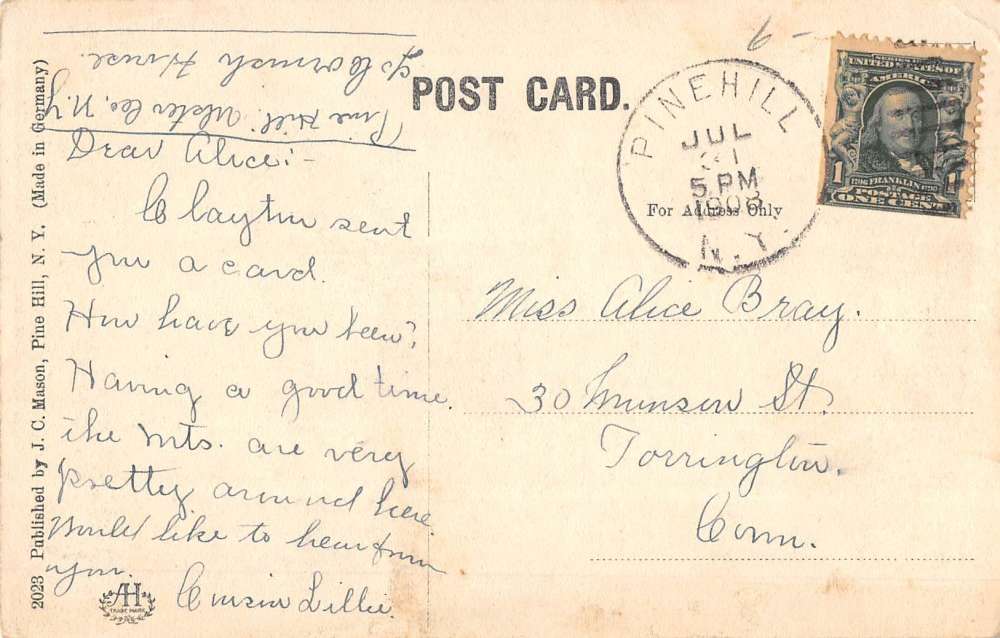 POST CARD.
c/o Cornish House.
Pine Hill. Ulster Co. N.Y.
Dear Alice:-
Clayton sent
you a card.
How have you been?
Having a good time.
the mts. are very
pretty around here
Would like to hear from
you.
Cousin Lillie
PINEHILL
JUL
31
5 PM
1908
N.Y.
For Address Only
UNITED STATES OF
AMERICA
1
FRANKLIN
POSTAGE
ONE CENT
Miss Alice Bray.
30 Munson St.
Torrington.
Conn.
2023 Published by J. C. Mason, Pine Hill, N. Y. (Made in Germany)
AH
TRADE MARK